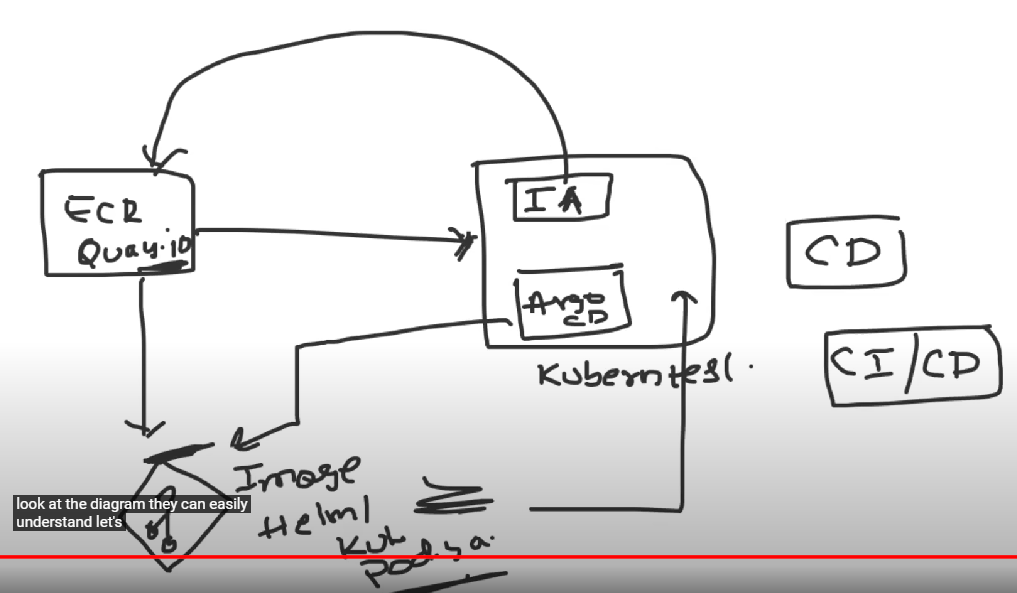 ECR
Quay.io
IA
Argo
CD
Kuberntes
CD
CI/CD
Image
Helm
look at the diagram they can easily
understand let's